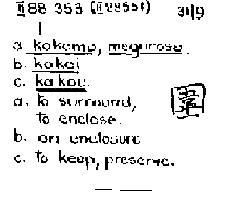 88 353 (188551) 31/9
a. kakomu, megurasu.
b. kakoi
c. kakou.
a. to surround,
to enclose.
b. an enclosure
c. to keep, preserve.